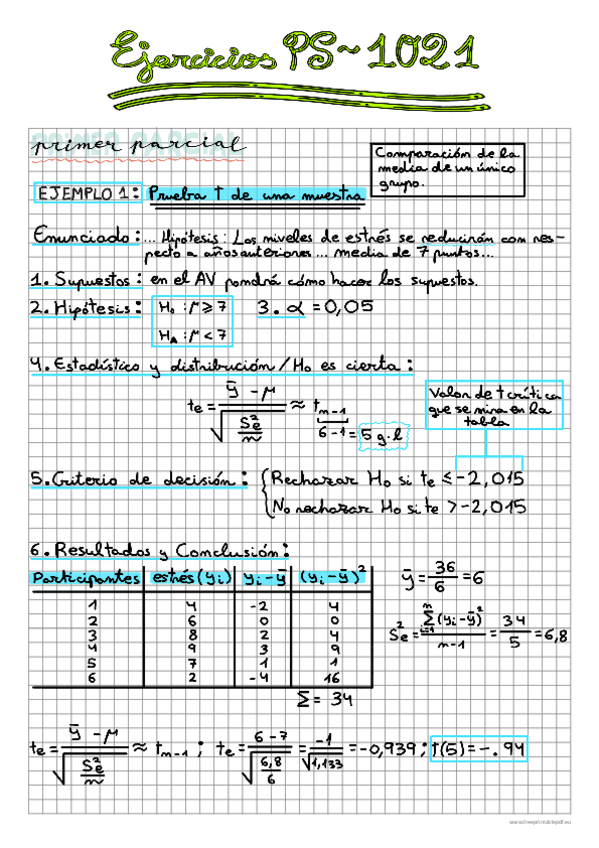 Ejercicios PS~1021
primer parcial
PRIMER PARCIAL
Comparación de la
media de un único
grupo.
EJEMPLO 1: Prueba T de una muestra
Enunciado: ... Hipótesis: Los niveles de estrés se reducirán con res-
pecto a años anteriores ... media de 7 puntos...
1. Supuestos: en el AV pondrá cómo hacer los supuestos.
2. Hipótesis: H₀: μ ⩾ 7 3. α = 0,05
Hₐ: μ < 7
4. Estadístico y distribución / H₀ es cierta:
te = (ȳ - μ) / √(Se²/n) ≈ t n-1
6-1 = 5 g.l
Valor de t crítica
que se mira en la
tabla
5. Criterio de decisión: { Rechazar H₀ si te ≤ -2,015
No rechazar H₀ si te > -2,015
6. Resultados y Conclusión:
Participantes estrés (yi) yi - ȳ (yi - ȳ)²
1 4 -2 4
2 6 0 0
3 8 2 4
4 9 3 9
5 7 1 1
6 2 -4 16
Σ = 34
ȳ = 36/6 = 6
Se² = Σ(yi - ȳ)² / (n-1) = 34/5 = 6,8
te = (ȳ - μ) / √(Se²/n) ≈ t n-1 ; te = (6 - 7) / √(6,8/6) = -1/√1,133 = -0,939 ; t(5) = -.94